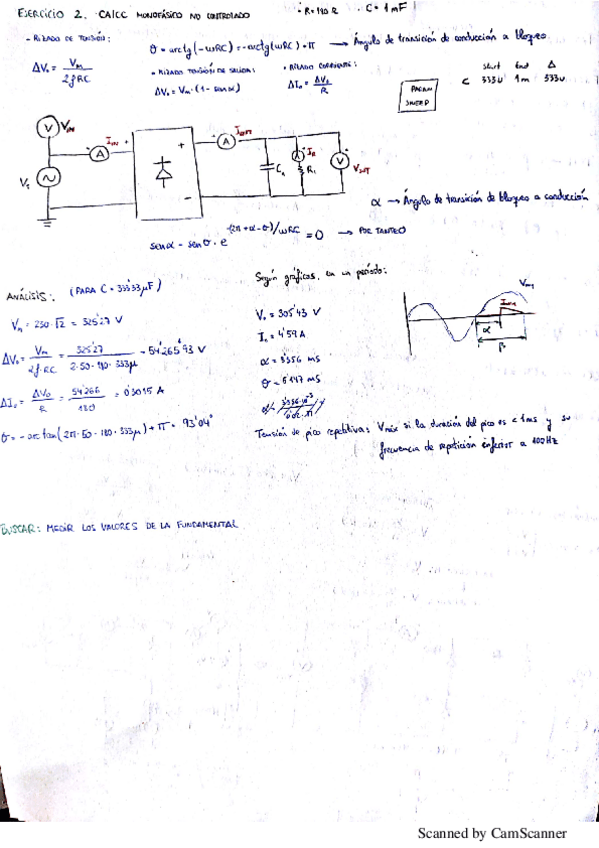 EJERCICIO 2. CA/CC MONOFÁSICO NO CONTROLADO · R = 180 Ω · C = 1 mF
- RIZADO DE TENSIÓN:
ΔV₀ = Vm / 2fRC
θ = arctg(-ωRC) = -arctg(ωRC) + π → Ángulo de transición de conducción a bloqueo
• RIZADO TENSIÓN DE SALIDA:
ΔV₀ = Vm · (1 - sen α)
• RIZADO CORRIENTE:
ΔI₀ = ΔV₀ / R
PARAM
SWEEP
Start End Δ
C 333u 1m 333u
V VIN
A IIN +
Vs
+
-
A IOUT
C₁
A IR
R₁
V VOUT
α → Ángulo de transición de bloqueo a conducción
sen α - sen θ · e^-(2π+α-θ)/ωRC = 0 → POR TANTEO
ANÁLISIS: (PARA C = 333'33 μF)
Vm = 230·√2 = 325'27 V
ΔV₀ = Vm / 2fRC = 325'27 / 2·50·180·333μ = 54'265 V
ΔI₀ = ΔV₀ / R = 54'266 / 180 = 0'3015 A
θ = - arctan(2π·50·180·333μ) + π = 93'04°
Según gráficos, en un período:
V₀ = 305'43 V
I₀ = 4'59 A
α = 3'556 ms
θ = 5'147 ms
Vm
α
Tensión de pico repetitiva: Vmáx si la duración del pico es < 1ms y su
frecuencia de repetición inferior a 100 Hz
BUSCAR: MEDIR LOS VALORES DE LA FUNDAMENTAL
Scanned by CamScanner